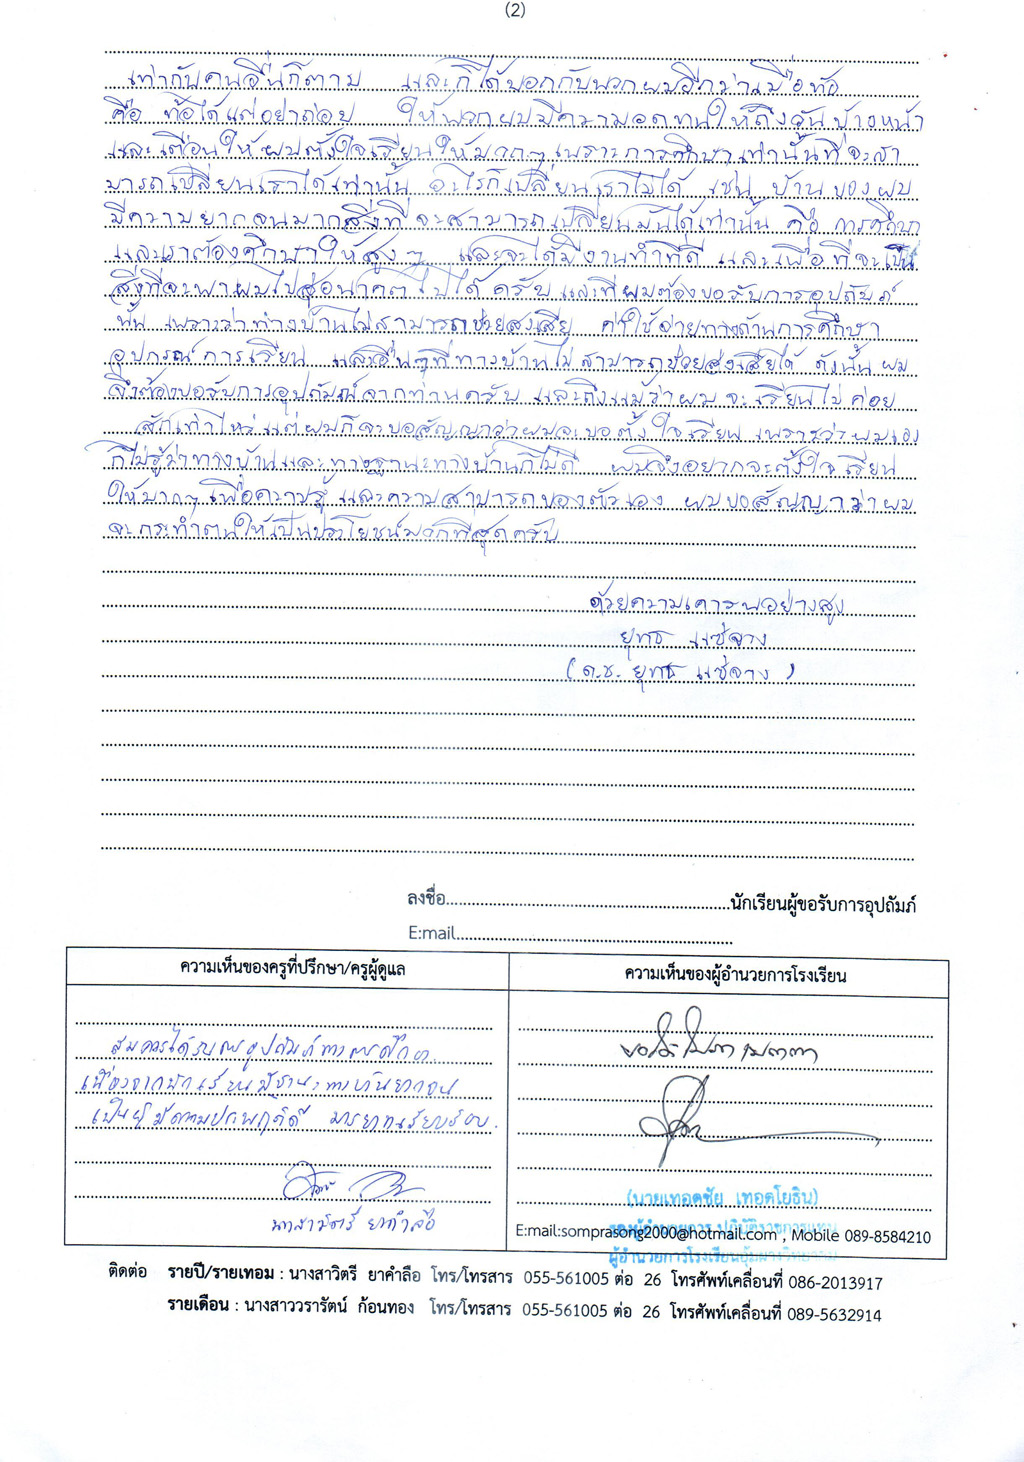 (2)
เท่ากับคนอื่นก็ตาม และก็ได้บอกกับพวกผมอีกว่าเมื่อท้อ
คือ ท้อได้แต่อย่าถอย ให้พวกผมมีความอดทนให้ถึงวันข้างหน้า
และเตือนให้ผมตั้งใจเรียนให้มากๆ เพราะการศึกษาเท่านั้นที่จะสา
มารถเปลี่ยนเราได้เท่านั้น อะไรก็เปลี่ยนเราไม่ได้ เช่น บ้านของผม
มีความยากจนมากสิ่งที่จะสามารถเปลี่ยนมันได้เท่านั้น คือ การศึกษา
และเราต้องศึกษาให้สูงๆ และจะได้มีงานทำที่ดี และเพื่อที่จะเป็น
สิ่งที่จะพาผมไปสู่อนาคตไปได้ ครับ และที่ผมต้องขอรับการอุปถัมภ์
นั้น เพราะว่าทางบ้านไม่สามารถช่วยส่งเสีย ค่าใช้จ่ายทางด้านการศึกษา
อุปกรณ์การเรียน และอื่นๆที่ทางบ้านไม่สามารถช่วยส่งเสียได้ ดังนั้น ผม
จึงต้องขอรับการอุปถัมภ์จากท่านครับ และถึงแม้ว่าผมจะเรียนไม่ค่อย
สักเท่าไหร่แต่ผมก็จะขอสัญญาว่าผมจะขอตั้งใจเรียน เพราะว่าผมเอง
ก็ไม่รู้ว่าทางบ้านและทางฐานะทางบ้านก็ไม่ดี ผมจึงอยากจะตั้งใจเรียน
ให้มากๆ เพื่อความรู้ และความสามารถของตัวเอง ผมขอสัญญาว่าผม
จะกระทำตนให้เป็นประโยชน์มากที่สุดครับ
ด้วยความเคารพอย่างสูง
ยุทธ แซ่จาง
(ด.ช. ยุทธ แซ่จาง)
ลงชื่อ.....................................................นักเรียนผู้ขอรับการอุปถัมภ์
E:mail.....................................................
ความเห็นของครูที่ปรึกษา/ครูผู้ดูแล
สมควรได้รับการอุปถัมภ์ทางการศึกษา
เนื่องจากนักเรียนมีฐานะทางบ้านยากจน
เป็นผู้มีความประพฤติดี มารยาทเรียบร้อย.
นางสาวิตรี ยาคำลือ
ความเห็นของผู้อำนวยการโรงเรียน
ขอได้โปรดเมตตา
(นายเทอดชัย เทอดโยธิน)
รองผู้อำนวยการ ปฏิบัติราชการแทน
E:mail:somprasong2000@hotmail.com , Mobile 089-8584210
ติดต่อ รายปี/รายเทอม : นางสาวิตรี ยาคำลือ โทร/โทรสาร 055-561005 ต่อ 26 โทรศัพท์เคลื่อนที่ 086-2013917
รายเดือน : นางสาววรารัตน์ ก้อนทอง โทร/โทรสาร 055-561005 ต่อ 26 โทรศัพท์เคลื่อนที่ 089-5632914